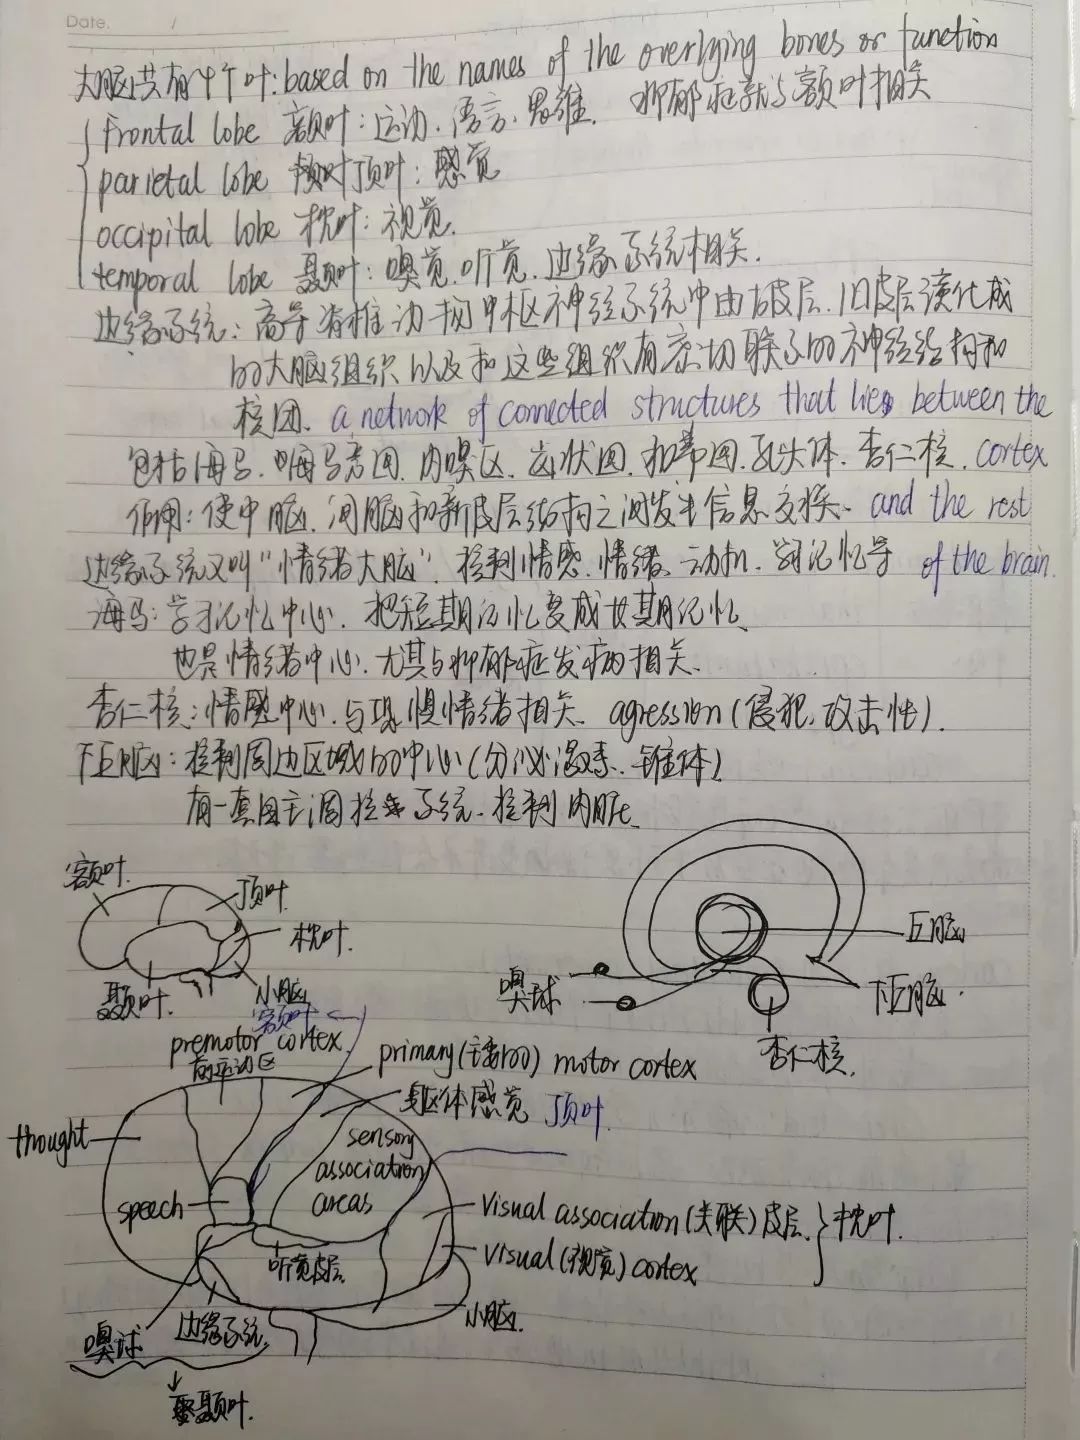 Date. /
大脑共有4个叶: based on the names of the overlying bones or function
frontal lobe 额叶: 运动、语言、思维. 抑郁症就与额叶相关
parietal lobe 顶叶: 感觉
occipital lobe 枕叶: 视觉.
temporal lobe 颞叶: 嗅觉、听觉、边缘系统相关.
边缘系统: 高等脊椎动物中枢神经系统中由古皮层、旧皮层演化成
的大脑组织以及和这些组织有密切联系的神经结构和
核团. a network of connected structures that lies between the
包括海马、海马旁回、内嗅区、齿状回、扣带回、乳头体、杏仁核. cortex
作用: 使中脑、间脑和新皮层结构之间发生信息交换. and the rest
边缘系统又叫"情绪大脑". 控制情感、情绪、动机、学习记忆等 of the brain.
海马: 学习记忆中心. 把短期记忆变成长期记忆.
也是情绪中心. 尤其与抑郁症发病相关.
杏仁核: 情感中心. 与恐惧情绪相关. agression (侵犯, 攻击性).
下丘脑: 控制周边区域的中心(分泌激素、垂体)
有一套自主调控系统. 控制内脏.
额叶.
顶叶.
枕叶.
颞叶.
小脑
丘脑
嗅球
下丘脑.
杏仁核.
额叶
premotor cortex
前运动区
primary (主要的) motor cortex
躯体感觉 顶叶
thought
sensory
association
areas
speech
visual association (关联) 皮层. } 枕叶.
听觉皮层
visual (视觉) cortex
小脑.
嗅球
边缘系统.
↓
颞叶.